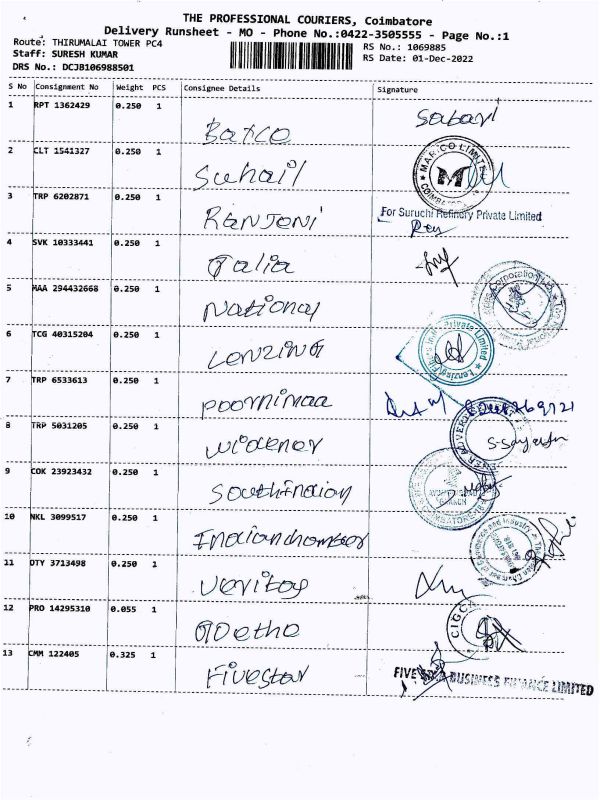 THE PROFESSIONAL COURIERS, Coimbatore
Delivery Runsheet - MO - Phone No.:0422-3505555 - Page No.:1
Route: THIRUMALAI TOWER PC4
RS No.: 1069885
Staff: SURESH KUMAR
RS Date: 01-Dec-2022
DRS No.: DCJB106988501
S No Consignment No Weight PCS Consignee Details Signature
1 RPT 1362429 0.250 1
Batco Sabari
2 CLT 1541327 0.250 1
Suhail MARICO LIMITED COIMBATORE
3 TRP 6202871 0.250 1
Ranjeni For Suruchi Refinery Private Limited
4 SVK 10333441 0.250 1
Talia
5 MAA 294432668 0.250 1
National
6 TCG 40315204 0.250 1
LENZING Private Limited
7 TRP 6533613 0.250 1
Poornimaa
8 TRP 5031205 0.250 1
Widener
9 COK 23923432 0.250 1
South Indian
10 NKL 3099517 0.250 1
Indianchamber
11 OTY 3713498 0.250 1
Veritas
12 PRO 14295310 0.055 1
Goethe
13 CMM 122405 0.325 1
Fivestar FIVE STAR BUSINESS FINANCE LIMITED